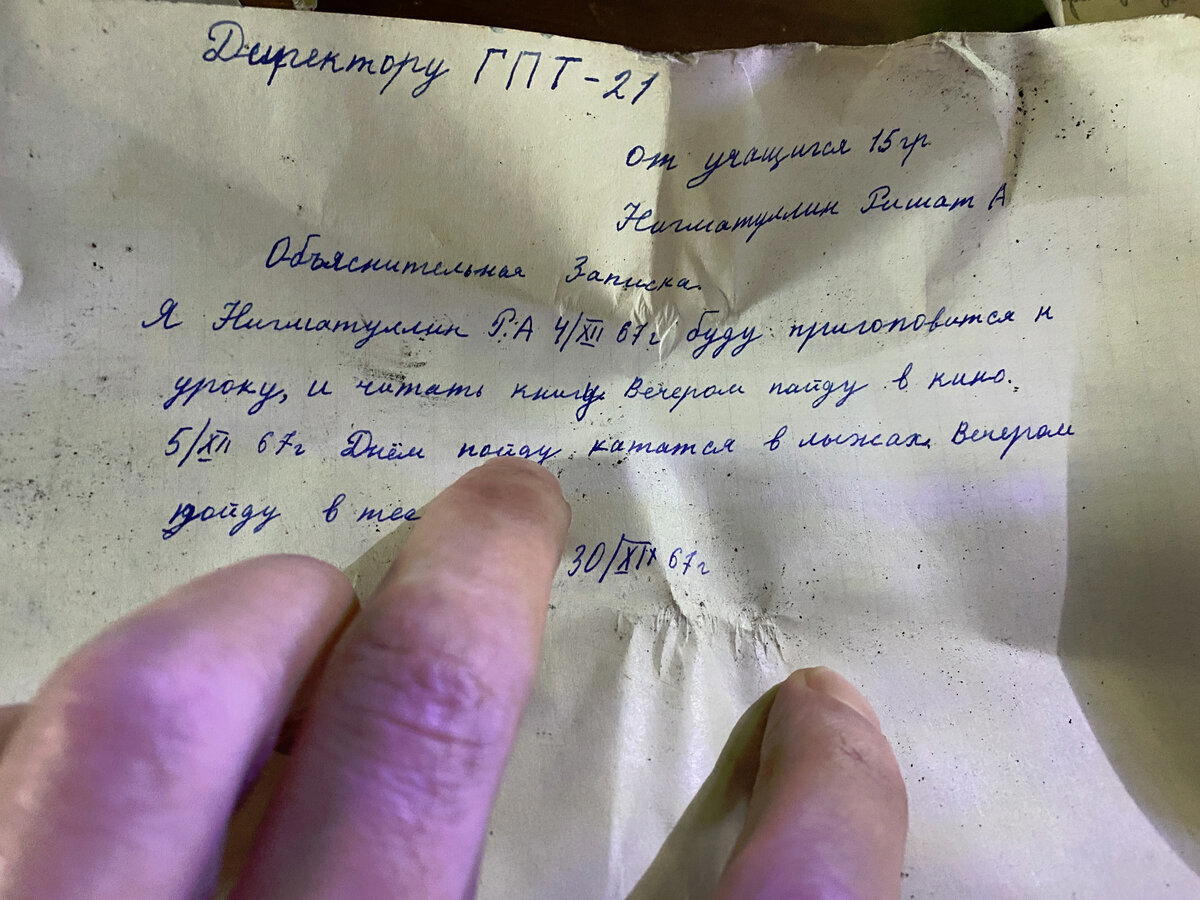 Директору ГПТ-21
от учащигся 15гр.
Нигматуллин Ришат А
Объяснительная Записка.
Я Нигматуллин Р.А 4/XII 67г буду пригоповится к
уроку, и читать книгу. Вечером пайду в кино.
5/XII 67г Днём пойду кататся в лыжах. Вечером
пойду в теа
30/XII 67г